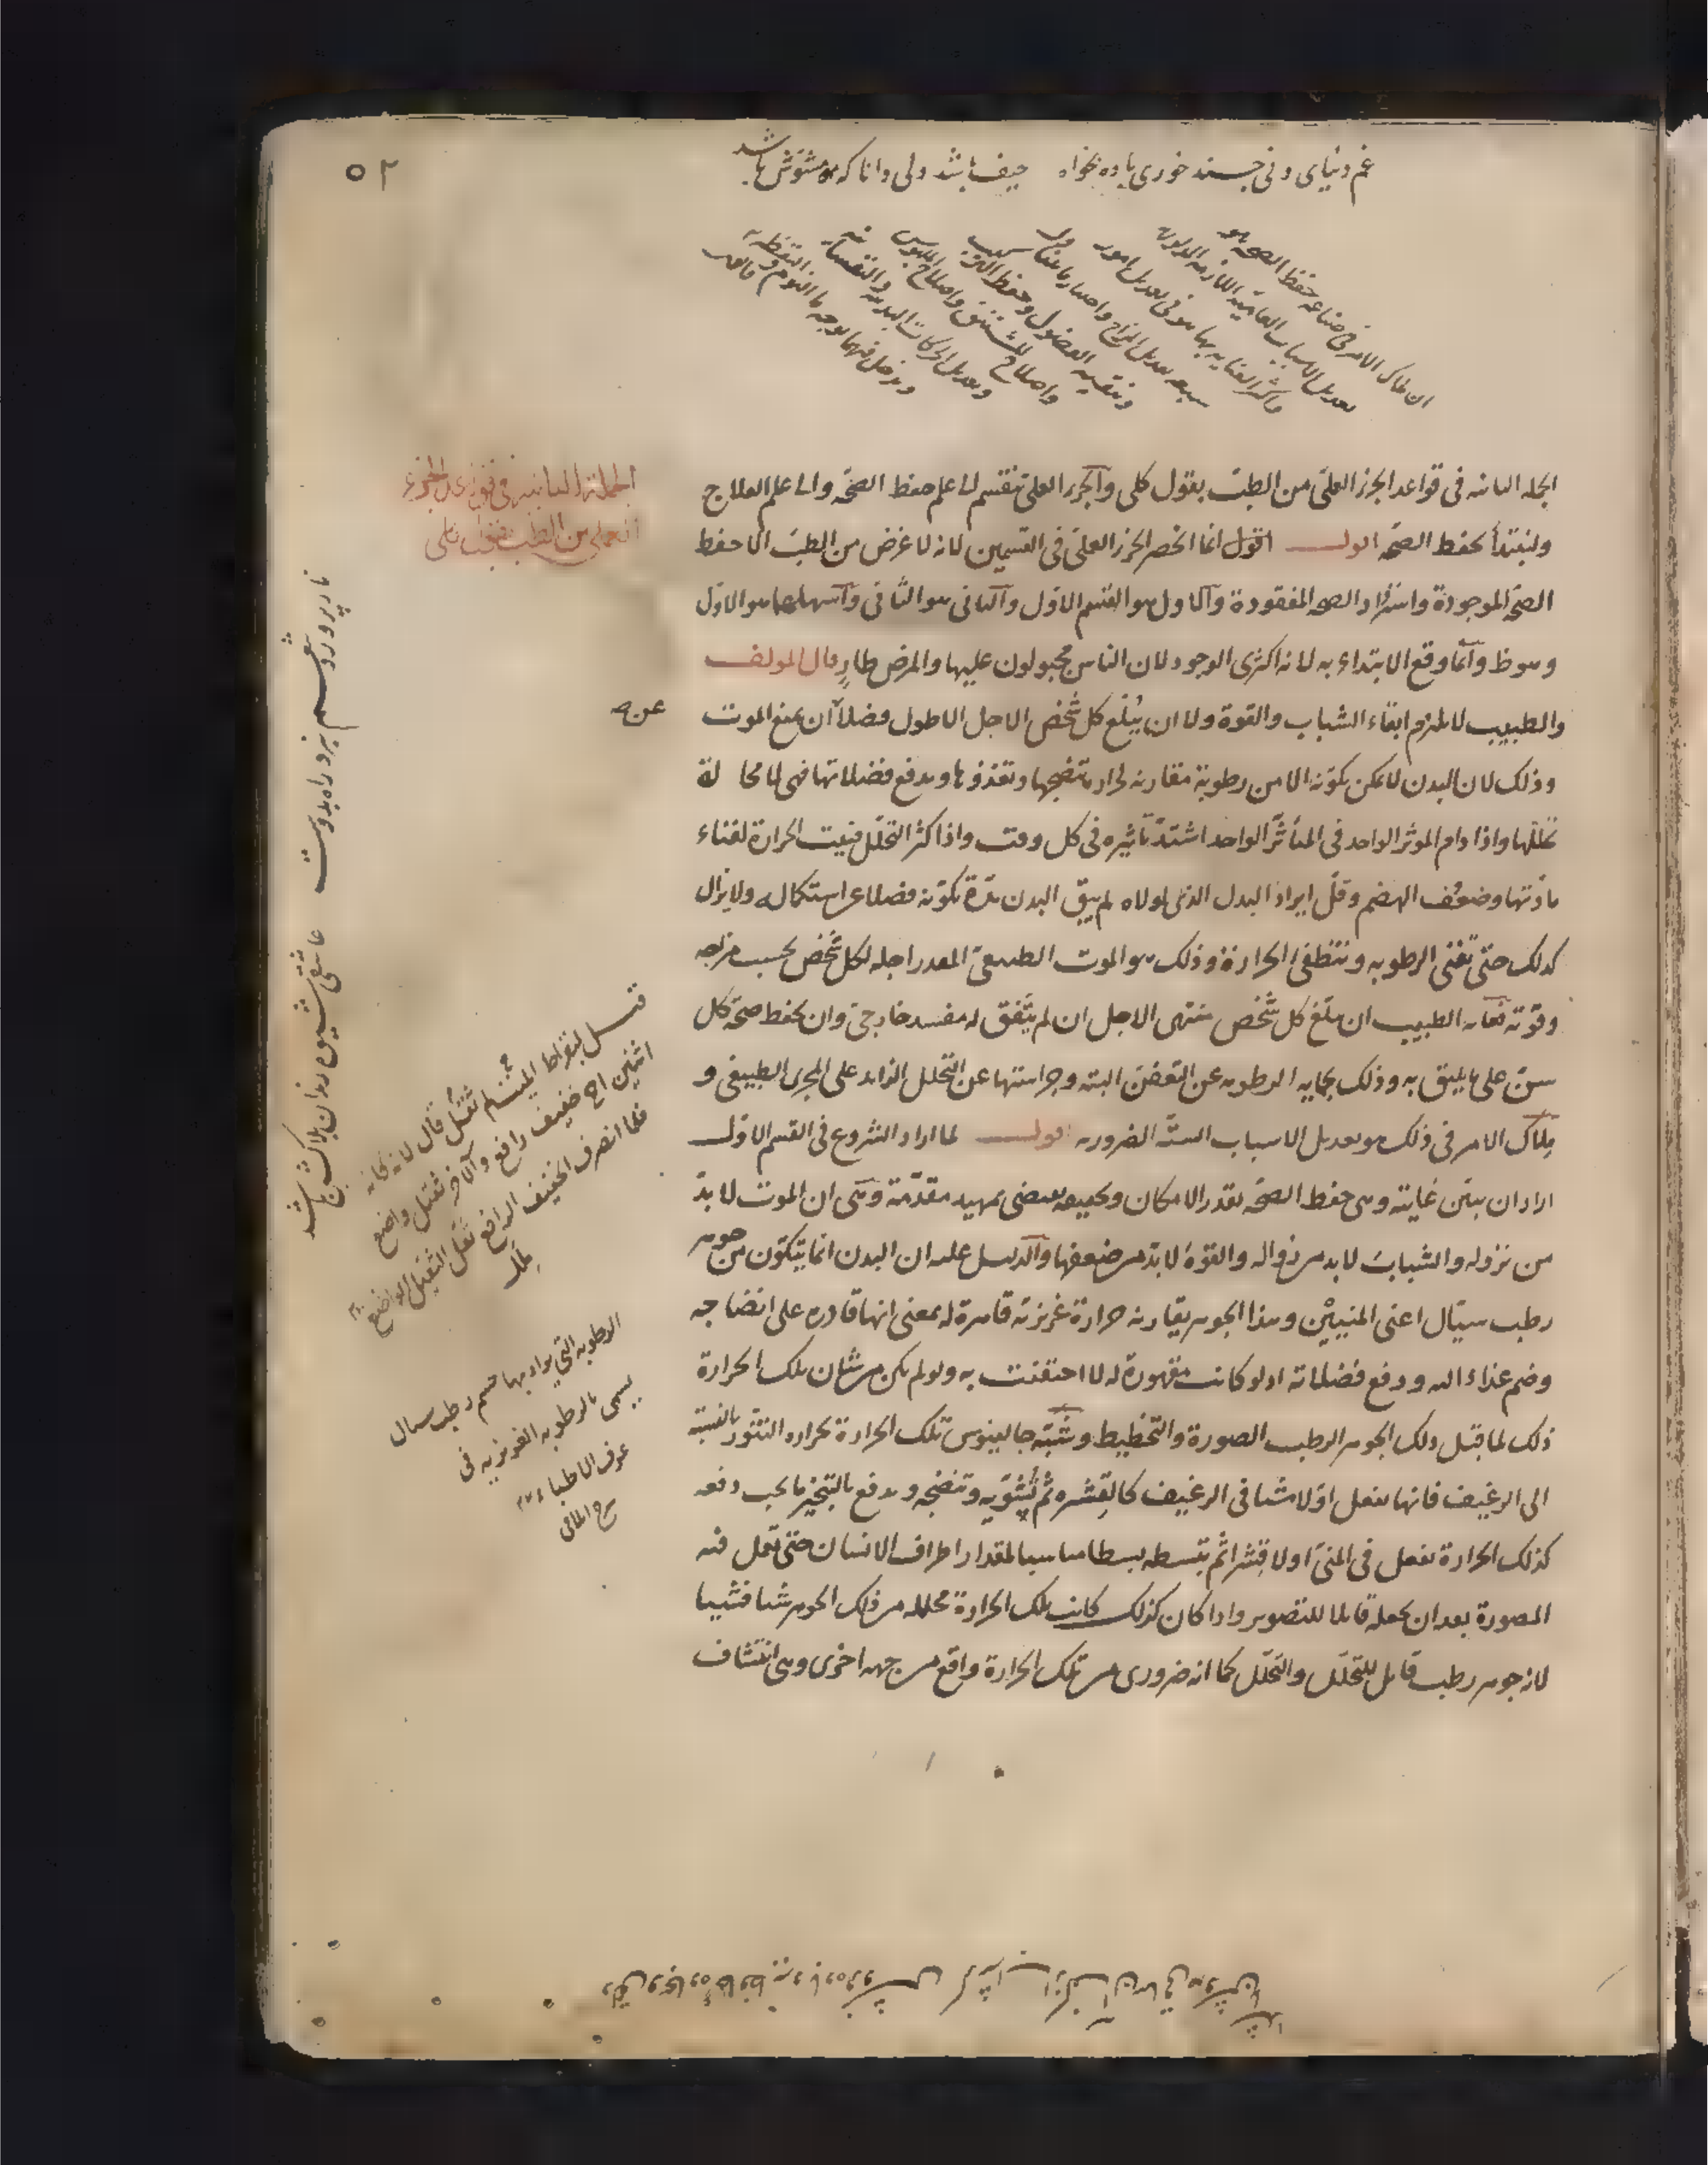 ٥٢
غم دنیای دنی چند خوری باده بخواه حیف باشد دل دانا که مشوش باشد
ان ملاك الامر فى صناعة حفظ الصحة هو
تعديل الاسباب العامية اللازمة
واكثر العناية بها هو فى تعديل امور
سبعة تعديل المزاج واختيار ما يتناول
وتنقية الفضول وحفظ التركيب
واصلاح المستنشق واصلاح الملبوس
وتعديل الحركات البدنية والنفسانية
ويدخل فيهما بوجه ما النوم واليقظة
الجملة الثانية فى قواعد الجزء
العملى من الطب بقول كلى
الجملة الثانية فى قواعد الجزء العملى من الطب بقول كلى والجزء العملى ينقسم الى علم حفظ الصحة والى علم العلاج
ولنبتدأ بحفظ الصحة اقول انما انحصر الجزء العملى فى القسمين لانه لا غرض من الطب الا حفظ
الصحة الموجودة واسترداد الصحة المفقودة والاول هو القسم الاول والثانى هو الثانى واسهلهما هو الاول
وهو ظ وانما وقع الابتداء به لانه اكثرى الوجود لان الناس مجبولون عليها والمرض طارٍ قال المولف
والطبيب لا يلزم ابقاء الشباب والقوة ولا ان يُبلّغ كل شخص الاجل الاطول فضلا ان يمنع الموت
عن ص
وذلك لان البدن لا يمكن تكونه الا من رطوبة مقارنة لحرارة تنضجها وتغذوها وتدفع فضلاتها فهى لا محا لة
تحللها واذا دام الموثر الواحد فى المتأثر الواحد اشتد تأثيره فى كل وقت واذا كثر التحلل فنيت الحرارة لفناء
مادتها وضعُف الهضم وقلّ ايراد البدل الذى لولاه لم يبق البدن مدة تكونه فضلا عن استكماله ولا يزال
كذلك حتى تفنى الرطوبة وتنطفئ الحرارة وذلك هو الموت الطبيعى المقدر اجله لكل شخص بحسب مزاجه
وقوته فغاية الطبيب ان يبلّغ كل شخص منتهى الاجل ان لم يتّفق له مفسد خارجى وان يحفظ صحة كل
سنّ على ما يليق به وذلك بحماية الرطوبة عن التعفن البتة وحراستها عن التحلل الزايد على المجرى الطبيعى و
مِلاك الامر فى ذلك هو تعديل الاسباب الستة الضرورية اقول لما اراد الشروع فى القسم الاول
اراد ان يبيّن غايته وهى حفظ الصحة بقدر الامكان وتحقيقه يقتضى تمهيد مقدّمة وهى ان الموت لا بدّ
من نزوله والشباب لا بد من زواله والقوة لا بد من ضعفها والدليل عليه ان البدن انما يتكون من جوهر
رطب سيّال اعنى المنيين وهذا الجوهر يقارنه حرارة غريزية قاهرة له بمعنى انها قادرة على انضاجه
وضم غذاء اليه ودفع فضلاته اذ لو كانت مقهورة له لاحتقنت به ولو لم يكن من شان تلك الحرارة
ذلك لما قبل ذلك الجوهر الرطب الصورة والتخطيط وشبّه جالينوس تلك الحرارة بحرارة التنور بالنسبة
الى الرغيف فانها تفعل اولا شيئا فى الرغيف كالقشرة ثم تُشوّيه وتنضجه وتدفع بالتبخير ما يجب دفعه
كذلك الحرارة تفعل فى المنى اولا قشرا ثم تبسطه بسطا مناسبا لمقدار اطراف الانسان حتى تعمل فيه
المصورة بعد ان تجعله قابلا للتصوير واذا كان كذلك كانت تلك الحرارة محللة من ذلك الجوهر شيئا فشيئا
لانه جوهر رطب قابل للتحلّل والتحلّل كما انه ضرورى من تلك الحرارة واقع من جهة اخرى وهى انتشاف
قيل لبقراط
ثقل قال لانه كانه
اثنين احد خفيف رافع والآخر ثقيل واضع
فلما انصرف الخفيف الرافع ثقل الثقيل الواضع
الرطوبة التى يراد بها جسم رطب سيال
يسمى بالرطوبة الغريزية فى
عرف الاطباء
ناز پرورد تنعم نبرد راه بدوست عاشقی شیوه رندان بلاکش باشد